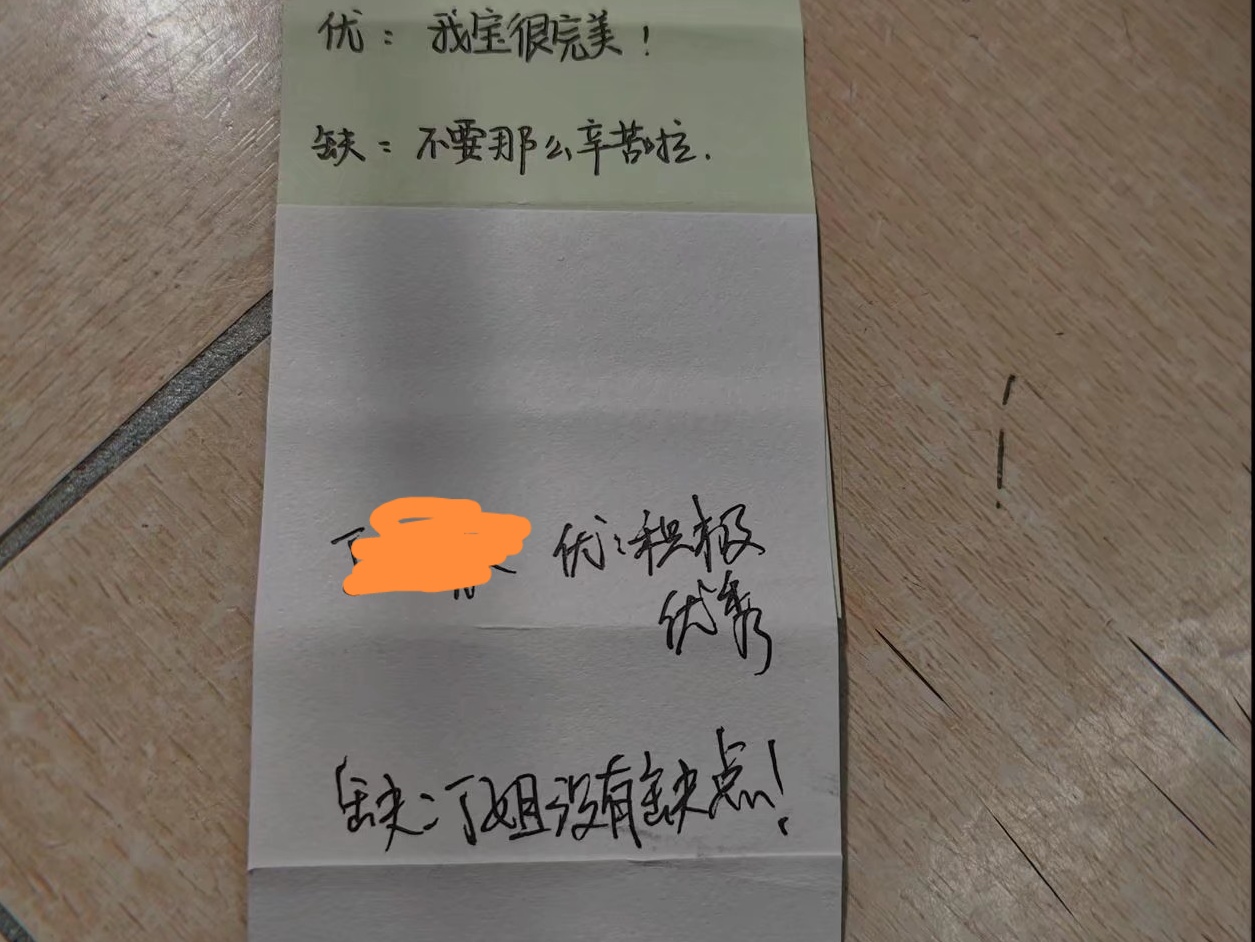 优：我宝很完美！
缺：不要那么辛苦啦.
丁 优：积极
优秀
缺：丁姐没有缺点！